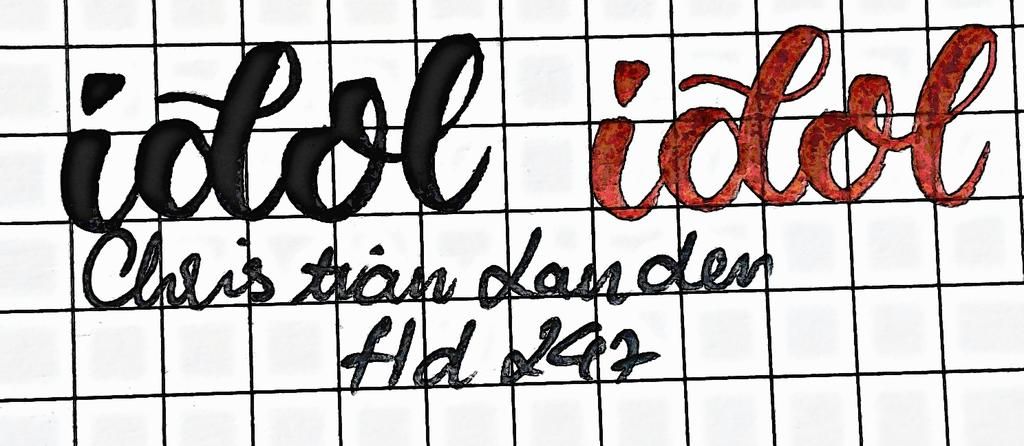 idol idol
Christian Lander
Hd 247